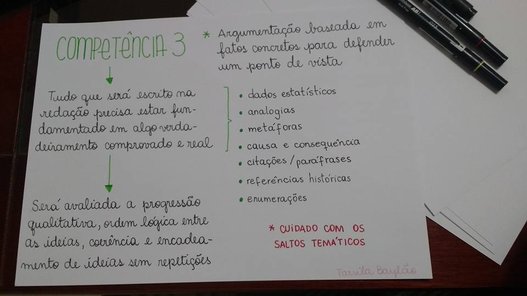 COMPETÊNCIA 3
Tudo que será escrito na
redação precisa estar fun-
damentado em algo verda-
deiramento comprovado e real
Será avaliada a progressão
qualitativa, ordem lógica entre
as ideias, coerência e encadea-
mento de ideias sem repetições
* Argumentação baseada em
fatos concretos para defender
um ponto de vista
• dados estatísticos
• analogias
• metáforas
• causa e consequência
• citações/paráfrases
• referências históricas
• enumerações
* CUIDADO COM OS
SALTOS TEMÁTICOS
Tarsila Baylão